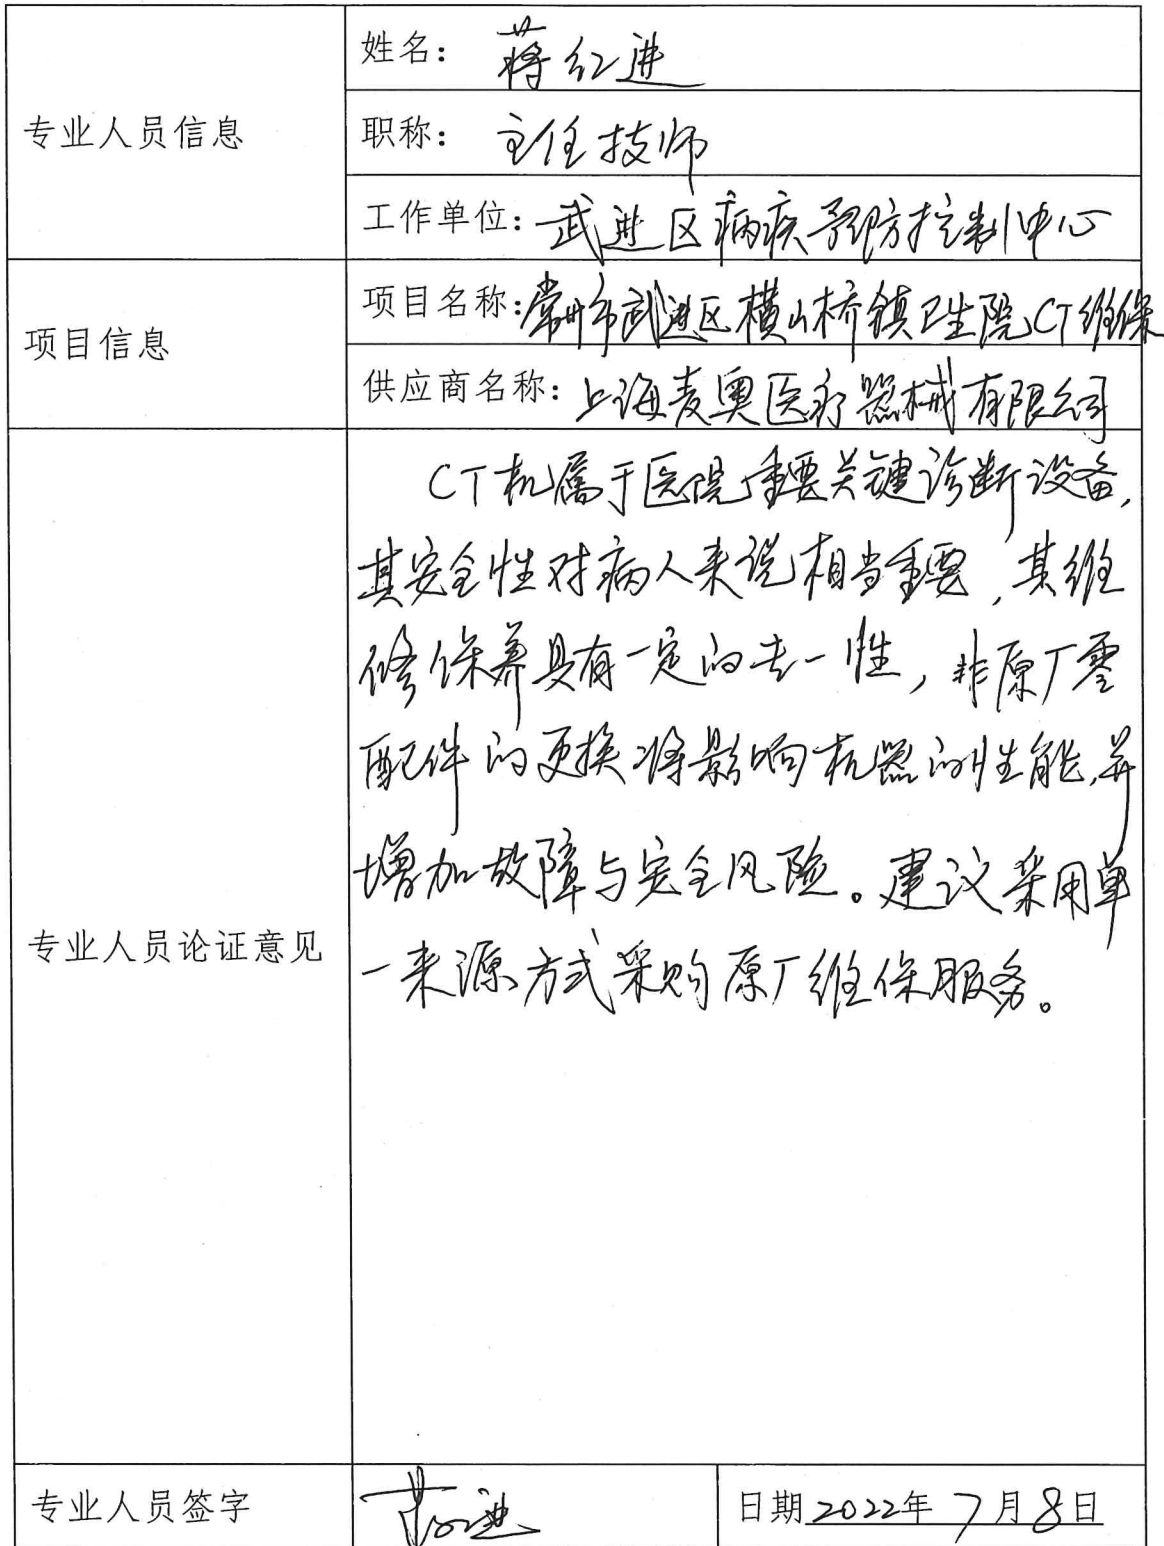 专业人员信息
姓名：蒋红进
职称：主任技师
工作单位：武进区病疾预防控制中心
项目信息
项目名称：常州市武进区横山桥镇卫生院CT维保
供应商名称：上海麦奥医疗器械有限公司
专业人员论证意见
CT机属于医院重要关键诊断设备，
其安全性对病人来说相当重要，其维
修保养具有一定的专一性，非原厂零
配件的更换将影响机器的性能，并
增加故障与安全风险。建议采用单
一来源方式采购原厂维保服务。
专业人员签字
蒋红进
日期2022年7月8日